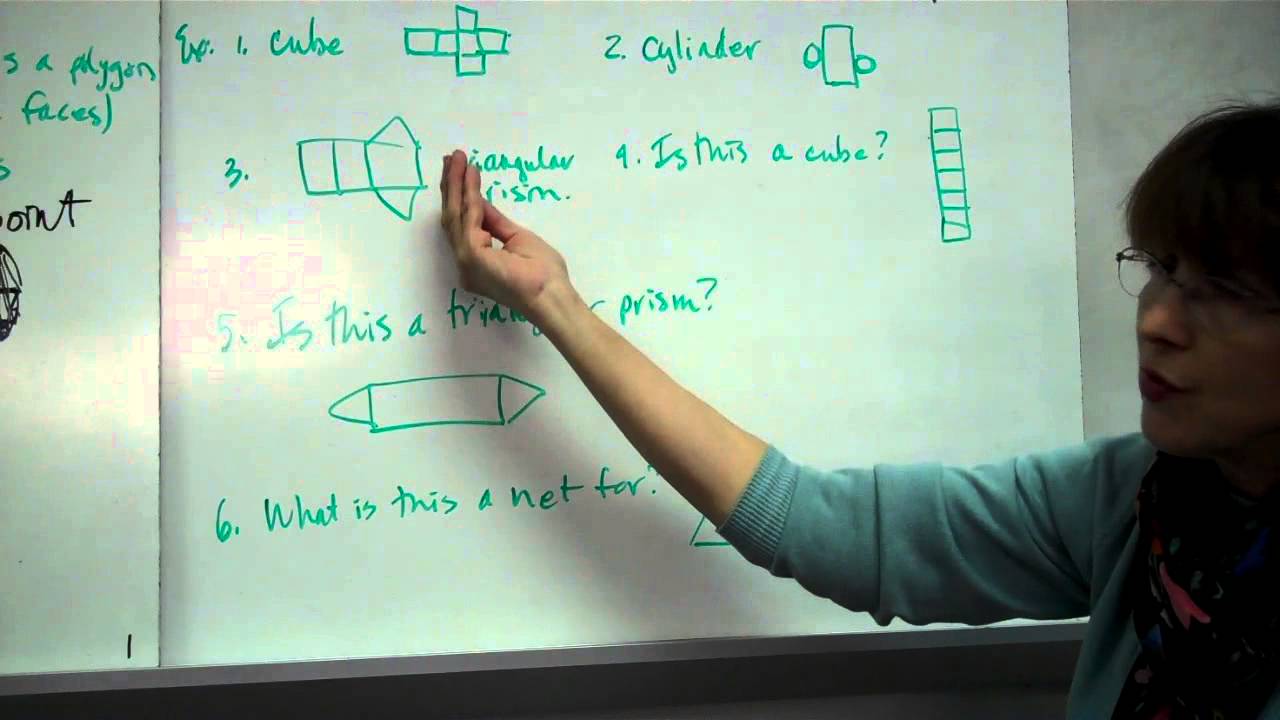 s a polygon
faces)
s
point
Ex. 1. cube
2. Cylinder
3.
riangular
rism.
4. Is this a cube?
5. Is this a triang r prism?
6. What is this a net for?
1